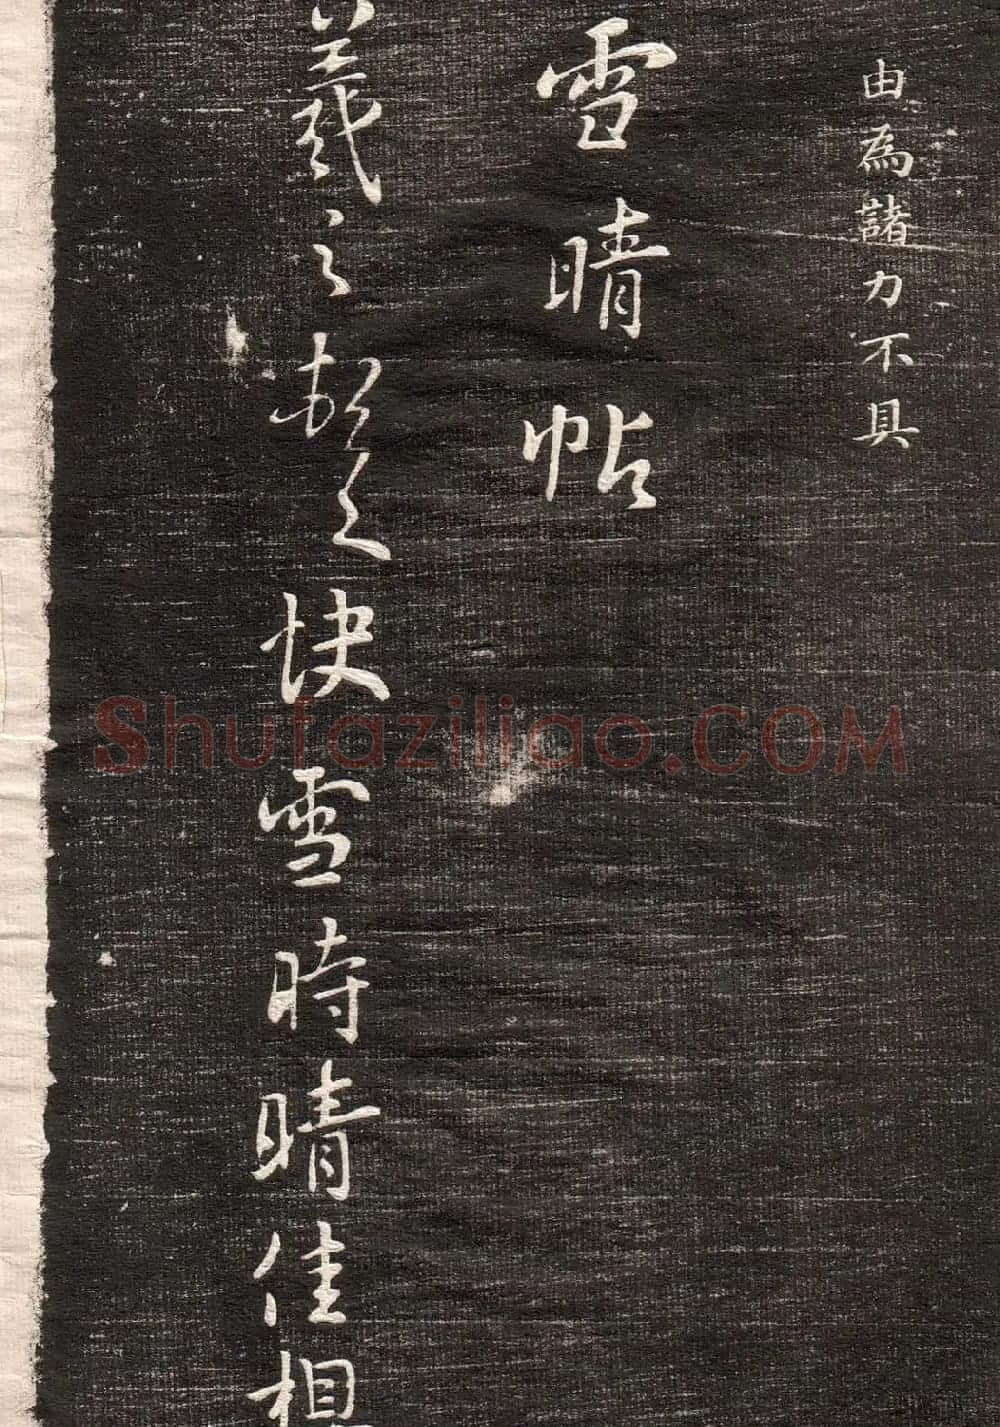 由為諸力不具
雪晴帖
羲之頓首快雪時晴佳想
Shufaziliao.COM